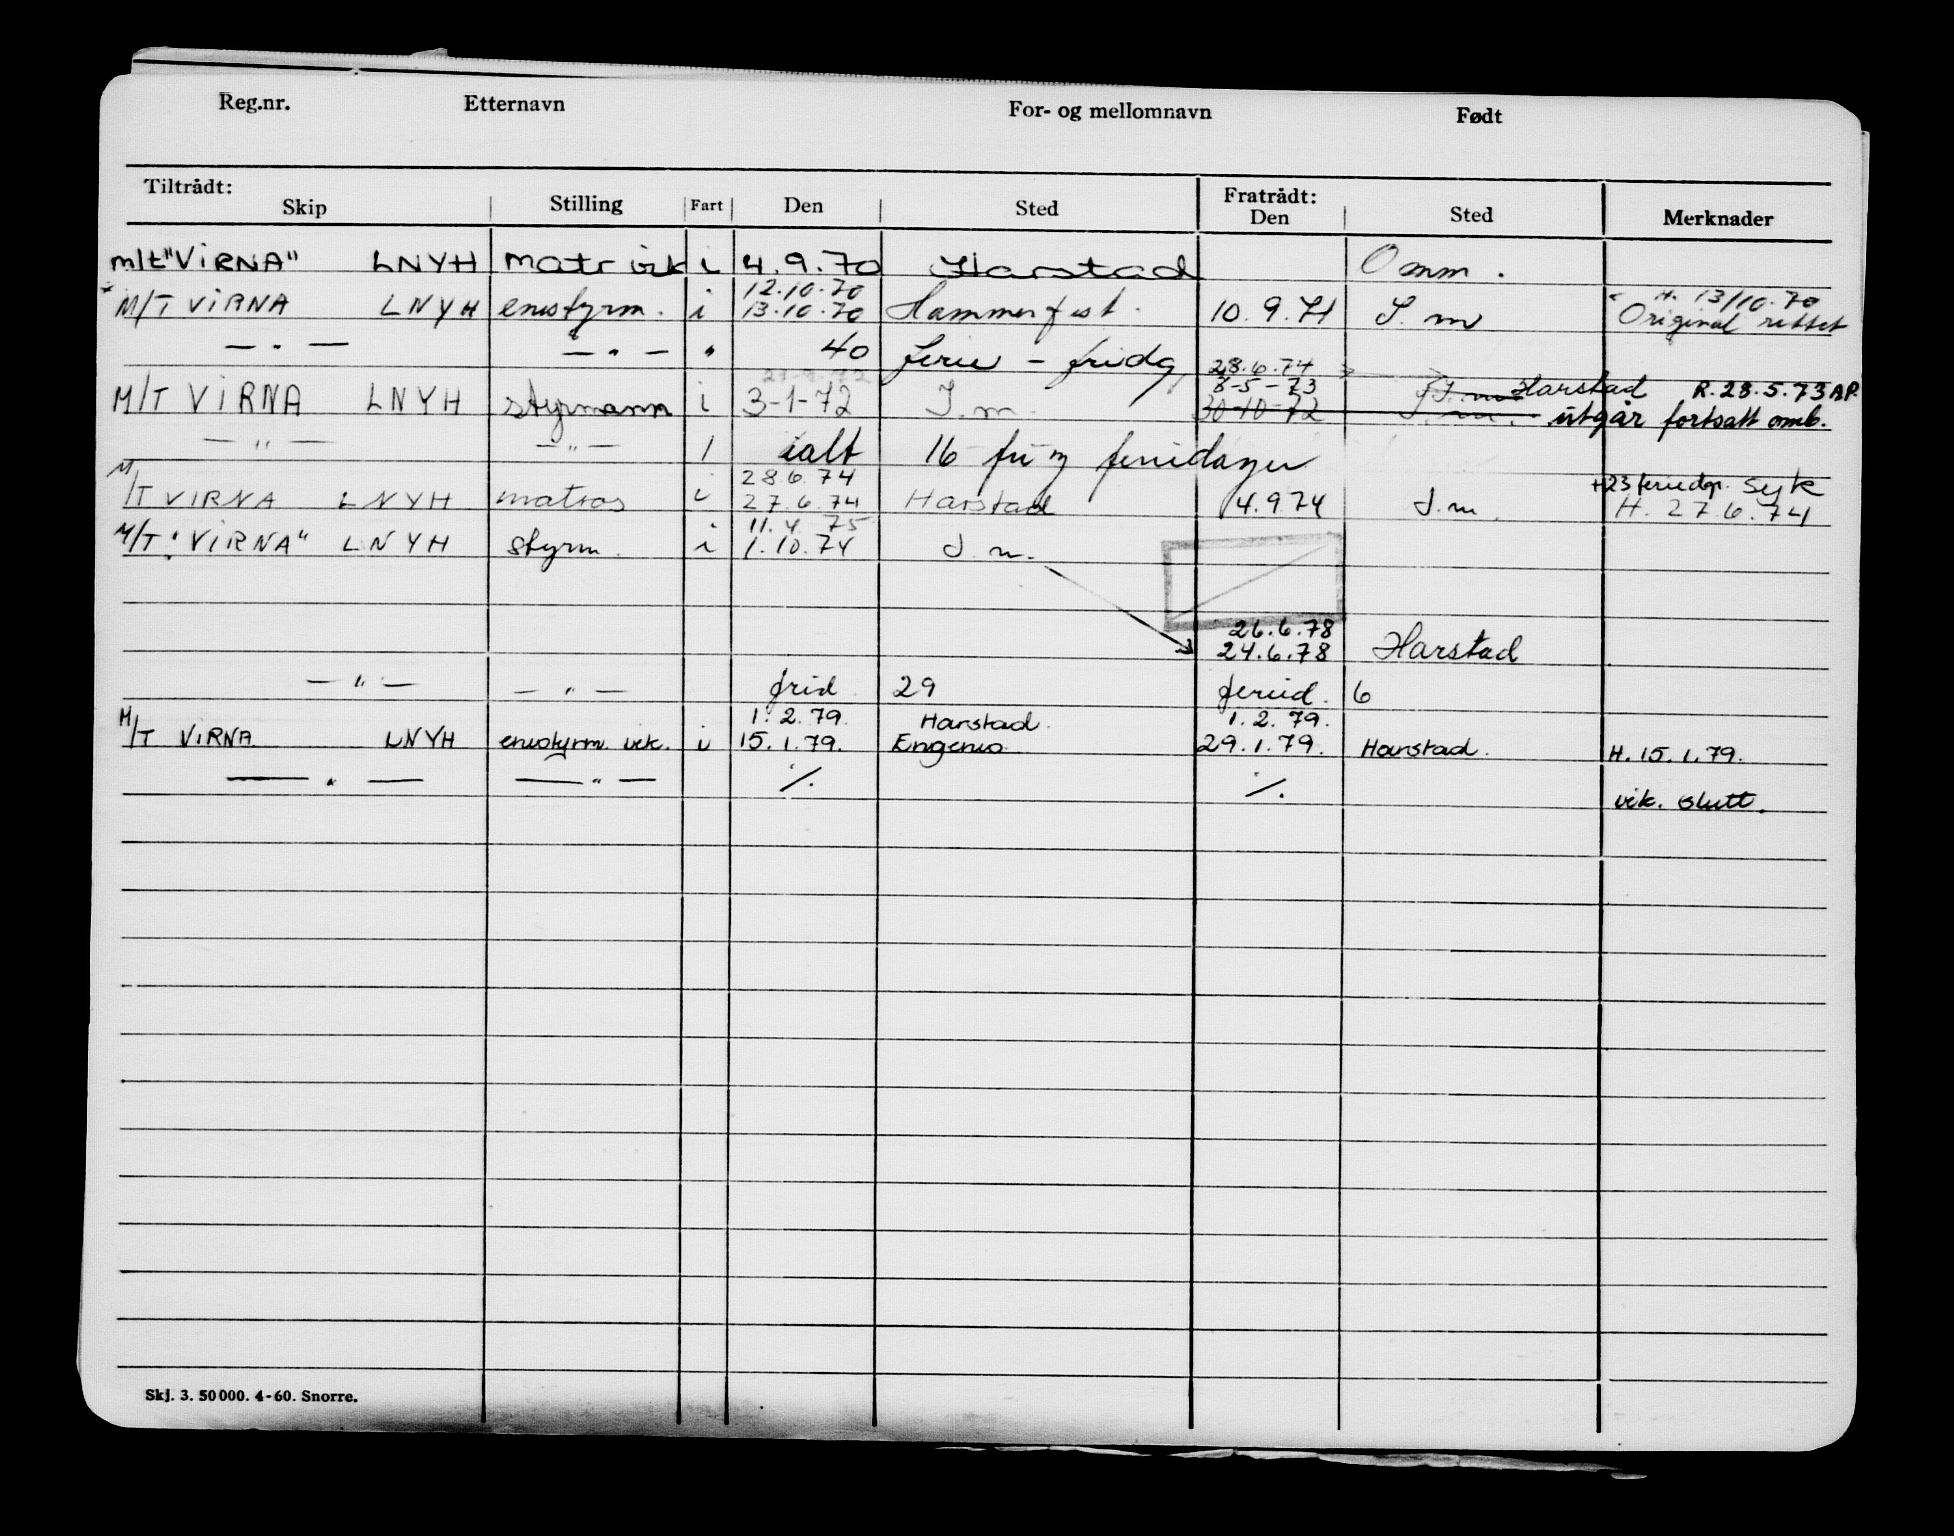 Reg.nr. Etternavn For- og mellomnavn Født
Tiltrådt: Fratrådt:
Skip Stilling Fart Den Sted Den Sted Merknader
m/t "VIRNA" LNYH matr vik i 4.9.70 Harstad Omm.
12.10.70 H. 13/10.70
M/T VIRNA LNYH enestyrm. i 13.10.70 Hammerfest. 10.9.71 S.m Original rettet
— " — — " — " 40 ferie - fridg
28.6.74
8-5-73 Harstad R.28.5.73 AP.
M/T VIRNA LNYH styrmann i 3-1-72 S.m. 30-10-72 S.m. utgår fortsatt omb.
— " — — " — ialt 16 fri og feriedager
28.6.74 +23 feriedgr. syk
M/T VIRNA LNYH matros i 27.6.74 Harstad 4.9.74 S.m. H. 27.6.74
11.4.75
M/T "VIRNA" LNYH styrm. i 1.10.74 S.m.
26.6.78
24.6.78 Harstad
— " — — " — frid 29 feried. 6
1.2.79. Harstad. 1.2.79.
M/T VIRNA LNYH enestyrm. vik. i 15.1.79. Engenes 29.1.79. Harstad. H. 15.1.79.
— " — — " — ./. ./. vik. slutt.
Skj. 3. 50 000. 4-60. Snorre.